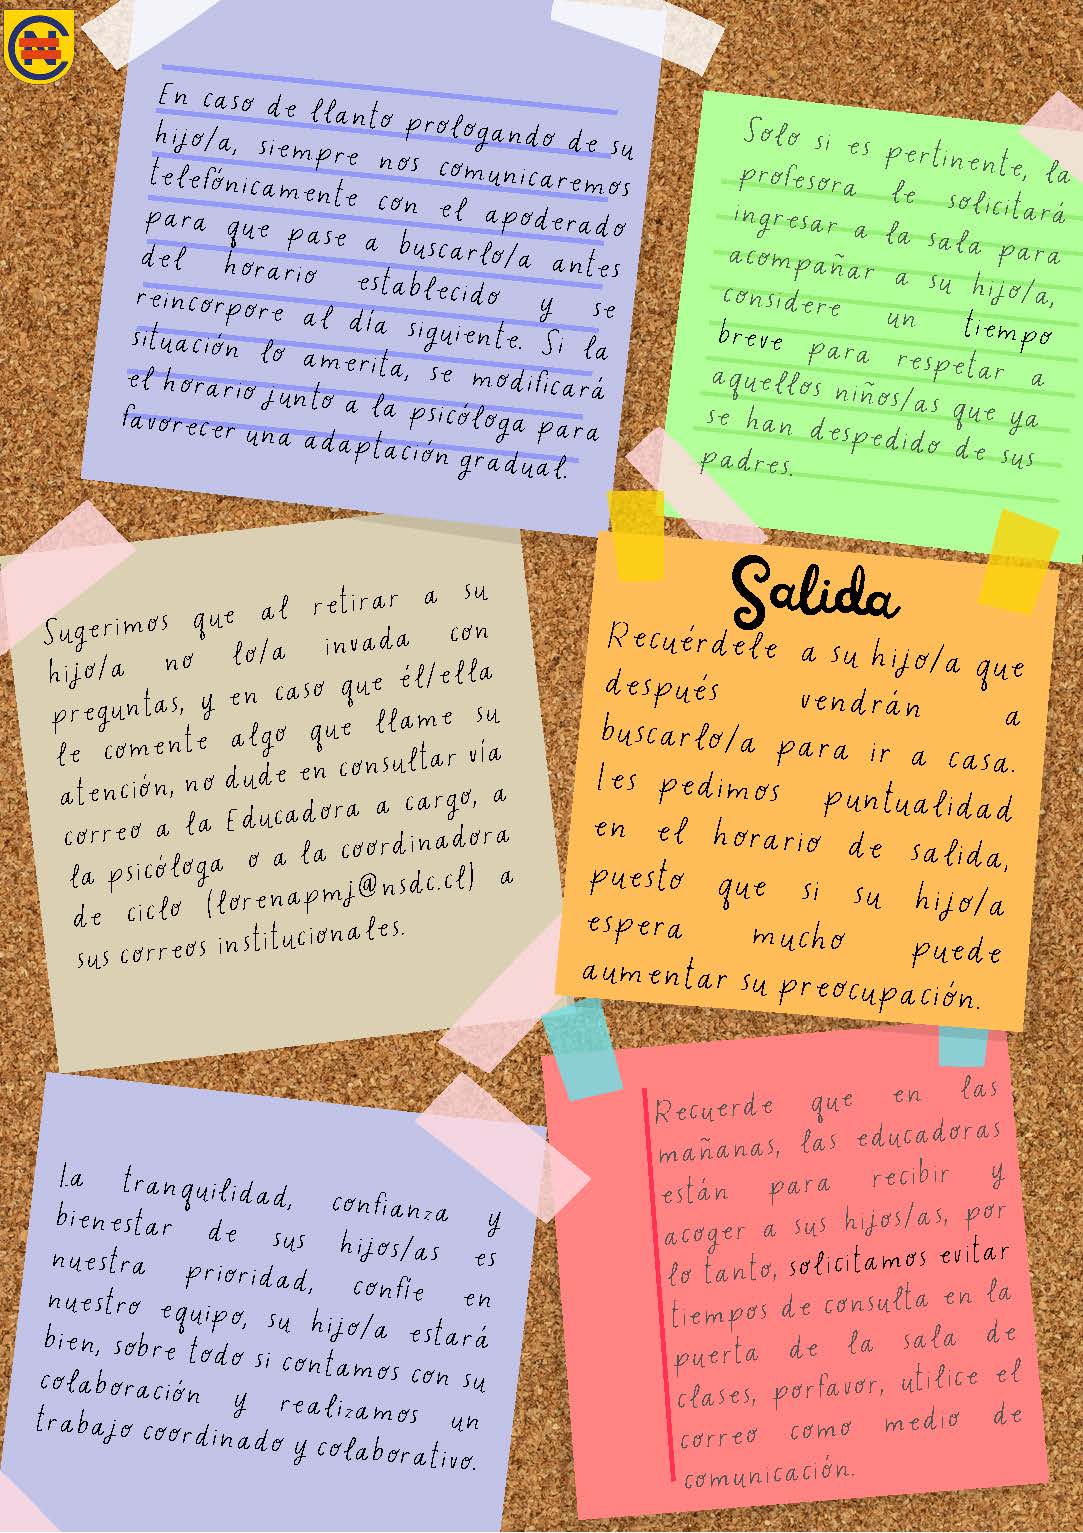 En caso de llanto prologando de su
hijo/a, siempre nos comunicaremos
telefónicamente con el apoderado
para que pase a buscarlo/a antes
del horario establecido y se
reincorpore al día siguiente. Si la
situación lo amerita, se modificará
el horario junto a la psicóloga para
favorecer una adaptación gradual.
Solo si es pertinente, la
profesora le solicitará
ingresar a la sala para
acompañar a su hijo/a,
considere un tiempo
breve para respetar a
aquellos niños/as que ya
se han despedido de sus
padres.
Sugerimos que al retirar a su
hijo/a no lo/a invada con
preguntas, y en caso que él/ella
le comente algo que llame su
atención, no dude en consultar vía
correo a la Educadora a cargo, a
la psicóloga o a la coordinadora
de ciclo (lorenapmj@nsdc.cl) a
sus correos institucionales.
Salida
Recuérdele a su hijo/a que
después vendrán a
buscarlo/a para ir a casa.
Les pedimos puntualidad
en el horario de salida,
puesto que si su hijo/a
espera mucho puede
aumentar su preocupación.
La tranquilidad, confianza y
bienestar de sus hijos/as es
nuestra prioridad, confíe en
nuestro equipo, su hijo/a estará
bien, sobre todo si contamos con su
colaboración y realizamos un
trabajo coordinado y colaborativo.
Recuerde que en las
mañanas, las educadoras
están para recibir y
acoger a sus hijos/as, por
lo tanto, solicitamos evitar
tiempos de consulta en la
puerta de la sala de
clases, porfavor, utilice el
correo como medio de
comunicación.